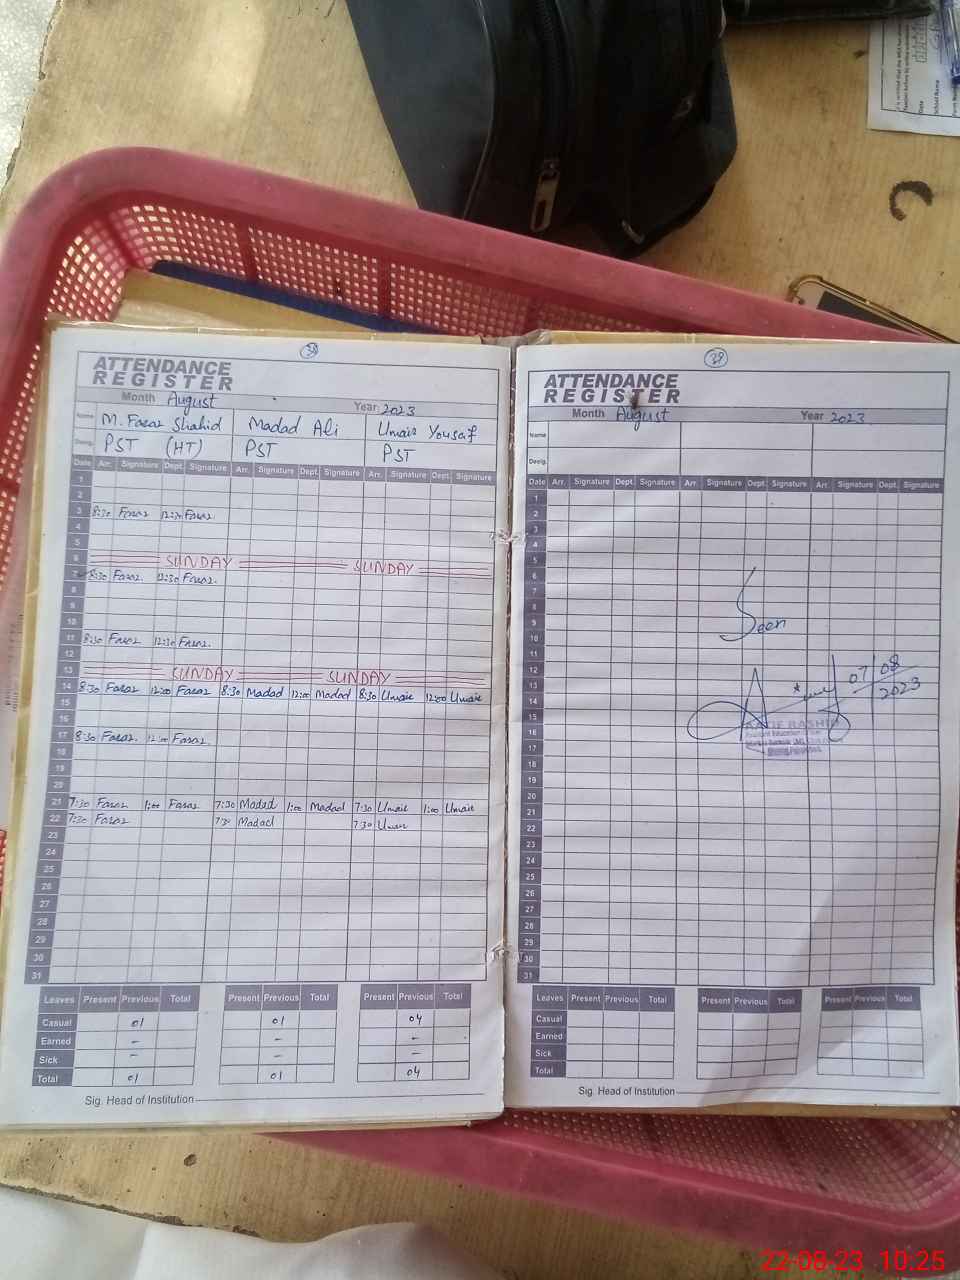 38
ATTENDANCE
REGISTER
Month August Year 2023
Name M. Faraz Shahid Madad Ali Umair Yousaf
Desig. PST (HT) PST PST
Date Arr. Signature Dept. Signature Arr. Signature Dept. Signature Arr. Signature Dept. Signature
1
2
3 8:30 Faraz 12:30 Faraz
4
5
6 SUNDAY SUNDAY
7 8:30 Faraz 12:30 Faraz
8
9
10
11 8:30 Faraz 12:30 Faraz
12
13 SUNDAY SUNDAY
14 8:30 Faraz 12:00 Faraz 8:30 Madad 12:00 Madad 8:30 Umair 12:00 Umair
15
16
17 8:30 Faraz 12:00 Faraz
18
19
20
21 7:30 Faraz 1:00 Faraz 7:30 Madad 1:00 Madad 7:30 Umair 1:00 Umair
22 7:30 Faraz 7:30 Madad 7:30 Umair
23
24
25
26
27
28
29
30
31
Leaves Present Previous Total Present Previous Total Present Previous Total
Casual 01 01 04
Earned - - -
Sick - - -
Total 01 01 04
Sig. Head of Institution
38
ATTENDANCE
REGISTER
Month August Year 2023
Name
Desig.
Date Arr. Signature Dept. Signature Arr. Signature Dept. Signature Arr. Signature Dept. Signature
1
2
3
4
5
6
7
8
9
10
11
12
13
14
15
16
17
18
19
20
21
22
23
24
25
26
27
28
29
30
31
Seen
07/08
2023
AATIF RASHID
Assistant Education Officer
Leaves Present Previous Total Present Previous Total Present Previous Total
Casual
Earned
Sick
Total
Sig. Head of Institution
Date
School Name
22-08-23 10:25